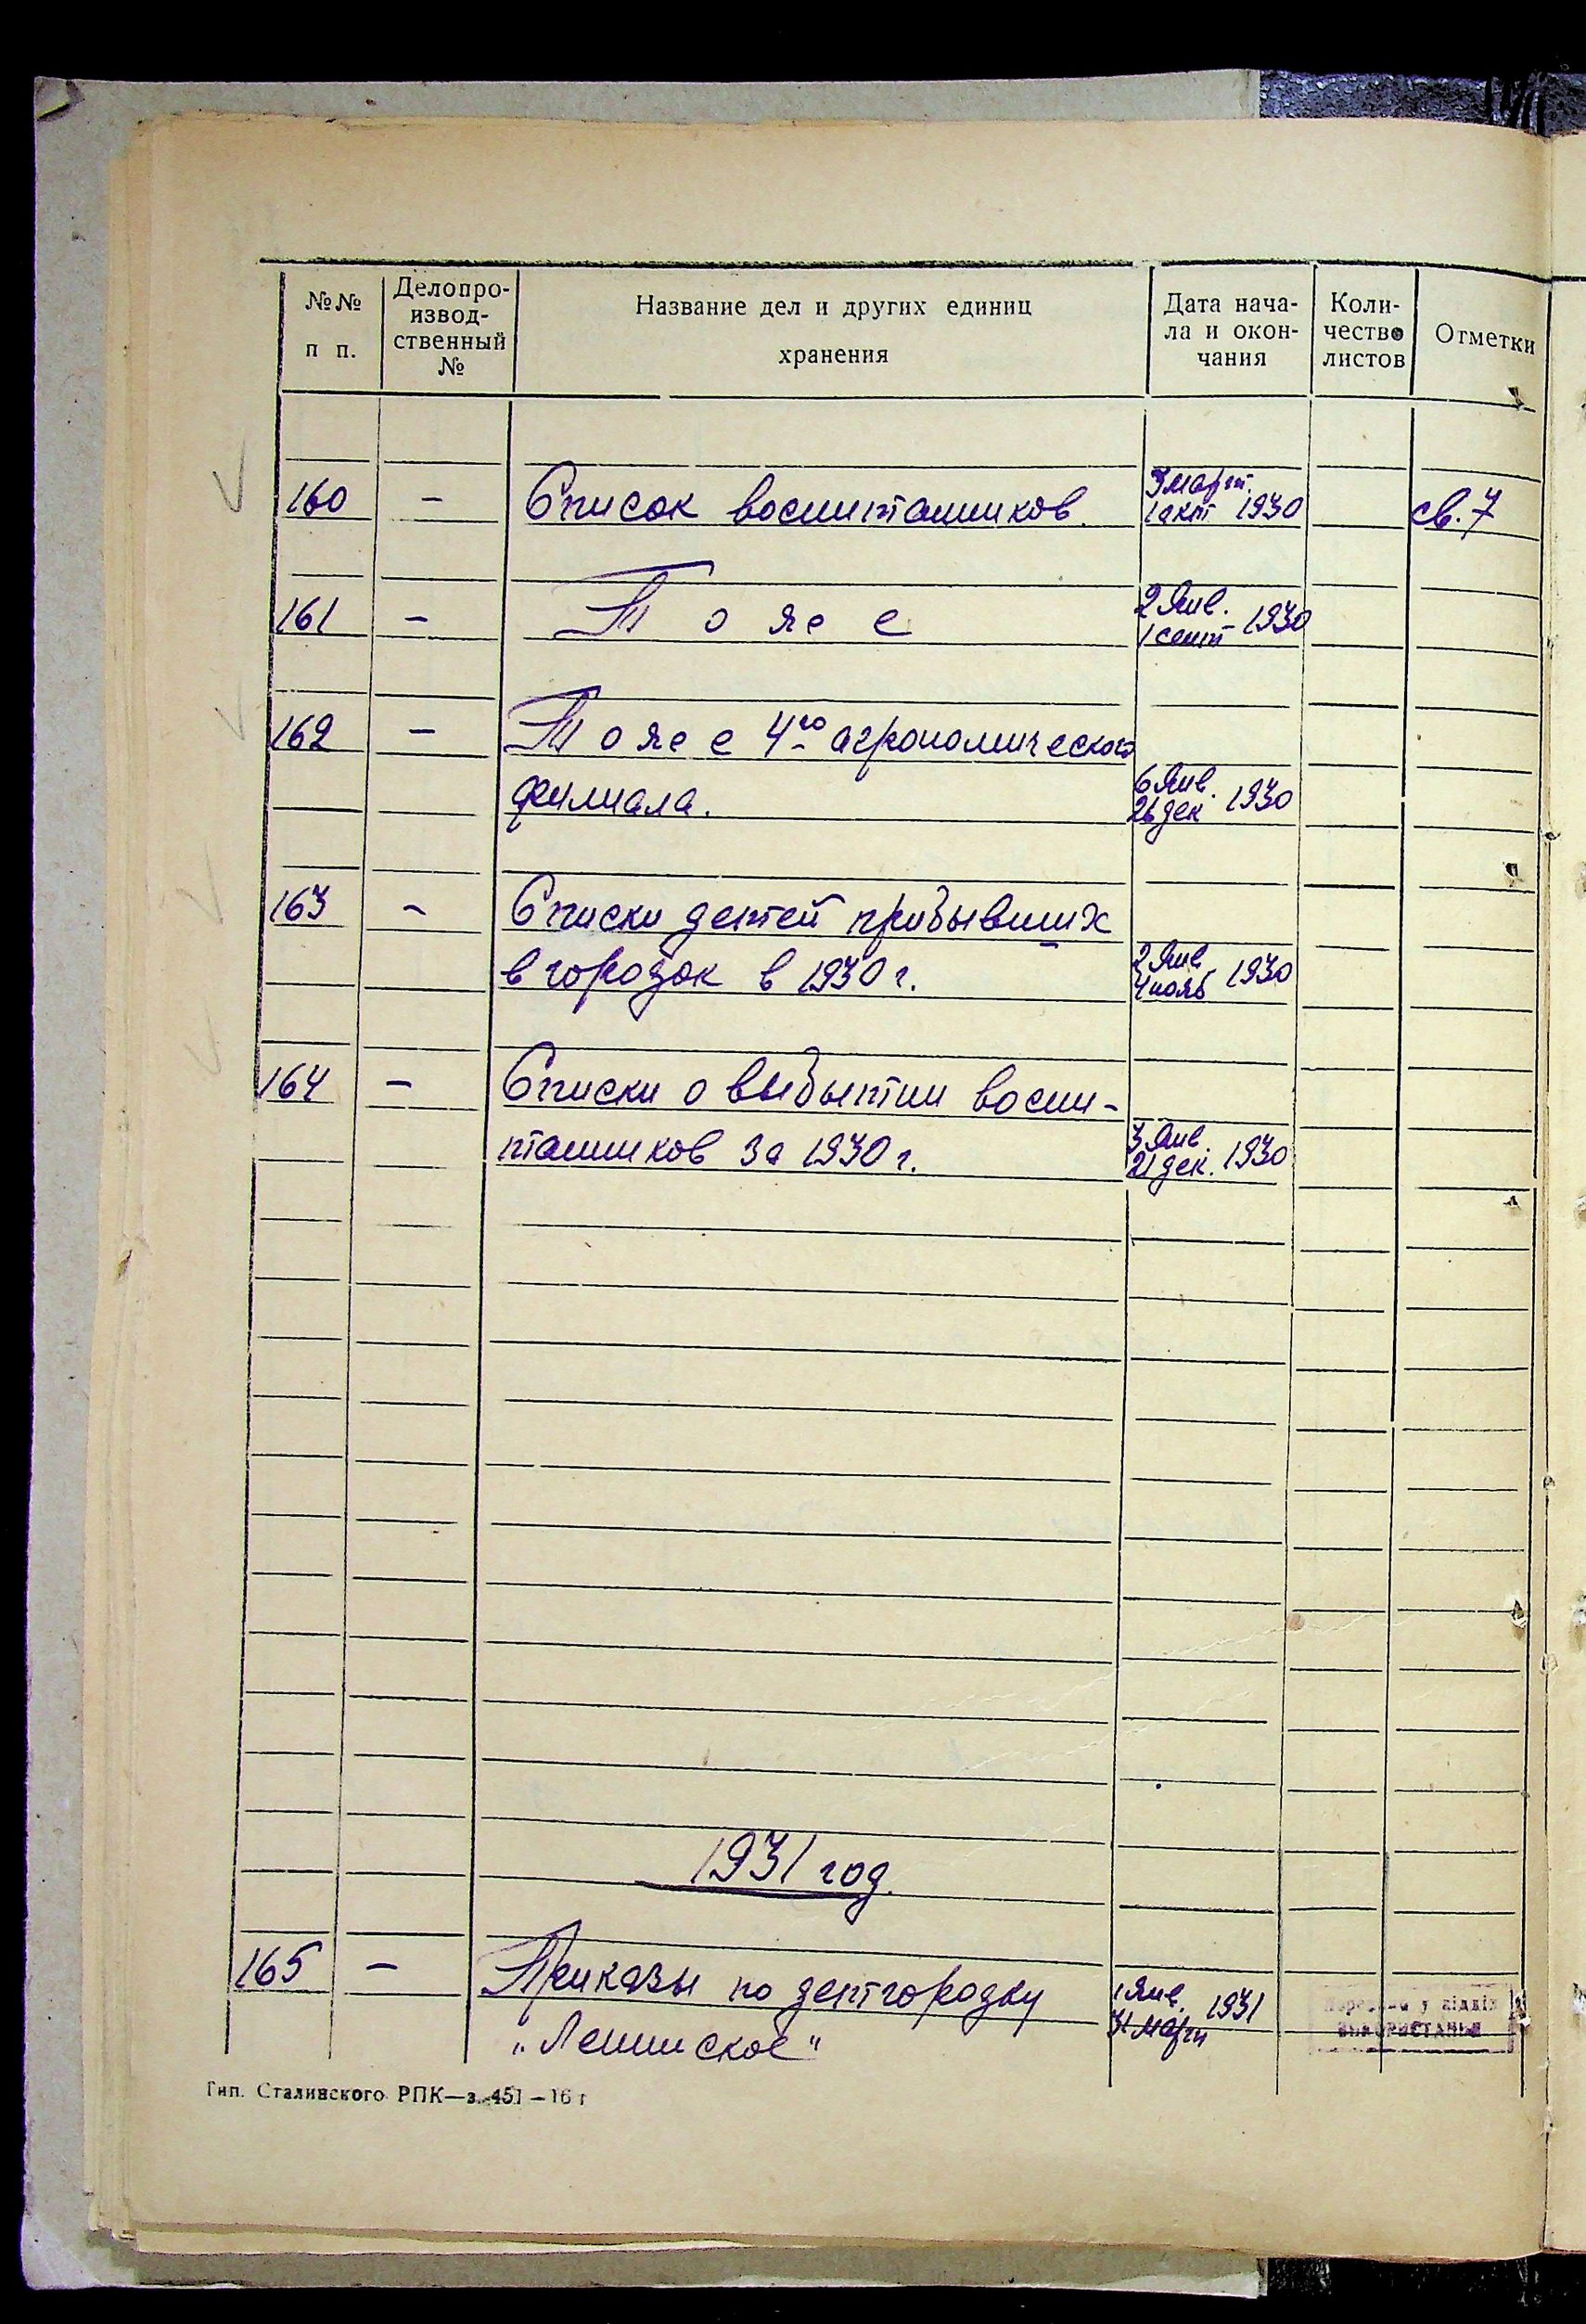 №№ п п.
Делопро-
извод-
ственный
№
Название дел и других единиц
хранения
Дата нача-
ла и окон-
чания
Коли-
чество
листов
Отметки
160 – Список воспитанников. 3 март. 1 окт 1930 св. 7
161 – То же 2 янв. 1 сент 1930
162 – То же 4го агрономического
филиала. 6 янв. 26 дек 1930
163 – Списки детей прибывших
в городок в 1930 г. 2 янв 4 нояб 1930
164 – Списки о выбытии воспи-
танников за 1930 г. 3 янв. 21 дек. 1930
1931 год.
165 – Приказы по детгородку 1 янв. 31 март 1931
„Ленинское“
у
Тип. Сталинского РПК—з. 451—16 г